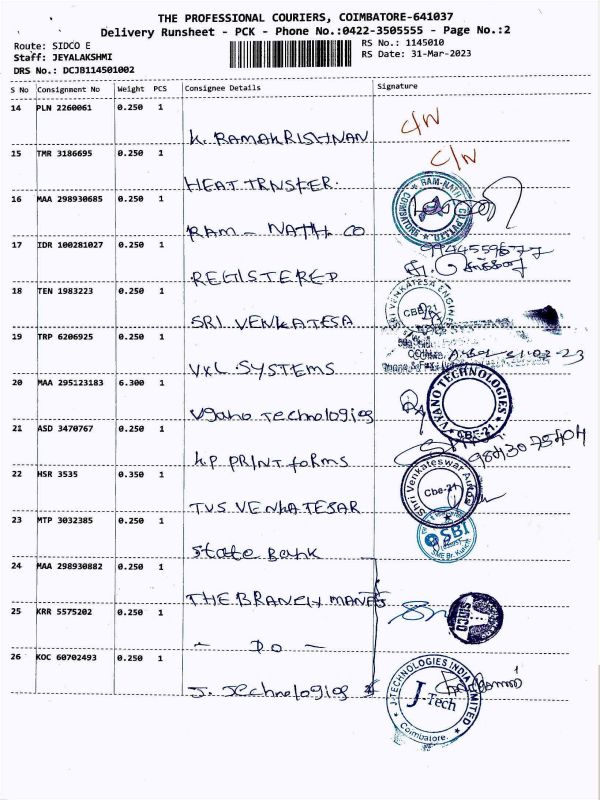 THE PROFESSIONAL COURIERS, COIMBATORE-641037
Delivery Runsheet - PCK - Phone No.:0422-3505555 - Page No.:2
Route: SIDCO E
RS No.: 1145010
Staff: JEYALAKSHMI
RS Date: 31-Mar-2023
DRS No.: DCJB114501002
S No Consignment No Weight PCS Consignee Details Signature
14 PLN 2260061 0.250 1
K. RAMAKRISHNAN C/N
15 TMR 3186695 0.250 1
C/N
HEAT TRNSFER.
16 MAA 298930685 0.250 1
RAM-NATH CO
17 IDR 100281027 0.250 1
REGISTERED
18 TEN 1983223 0.250 1
SRI VENKATESA
CBE-21
19 TRP 6206925 0.250 1
31-03-23
VKL SYSTEMS
20 MAA 295123183 6.300 1
Vyano Technologies
VYANO TECHNOLOGIES
CBE-21.
21 ASD 3470767 0.250 1
9843075404
K.P. PRINT forms
22 HSR 3535 0.350 1
Shri Venkateswar Autos
Cbe-21
TVS. VENKATESAR
23 MTP 3032385 0.250 1
SBI
State Bank
24 MAA 298930882 0.250 1
THE BRANCH MANEG
25 KRR 5575202 0.250 1
SIDCO
- DO -
26 KOC 60702493 0.250 1
J. Technologies
J-TECHNOLOGIES INDIA LIMITED
J-Tech
Coimbatore.